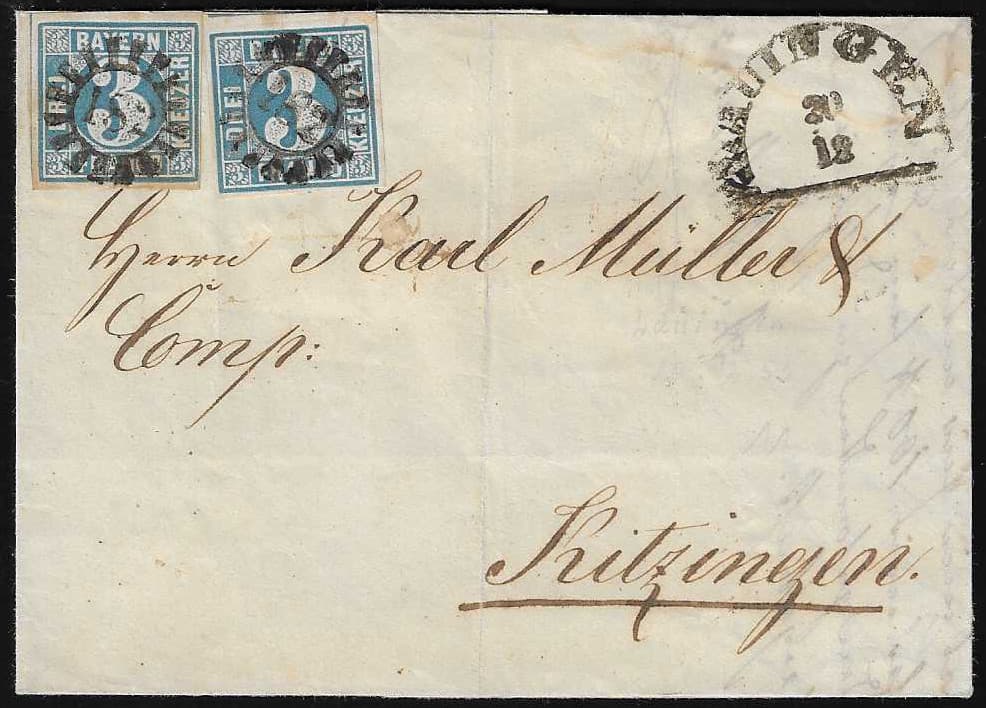 BAYERN
DREI
KREUZER
3
DREI
KREUZER
3
LAUINGEN
20
12
Herrn Karl Müller &
Comp:
Kitzingen.